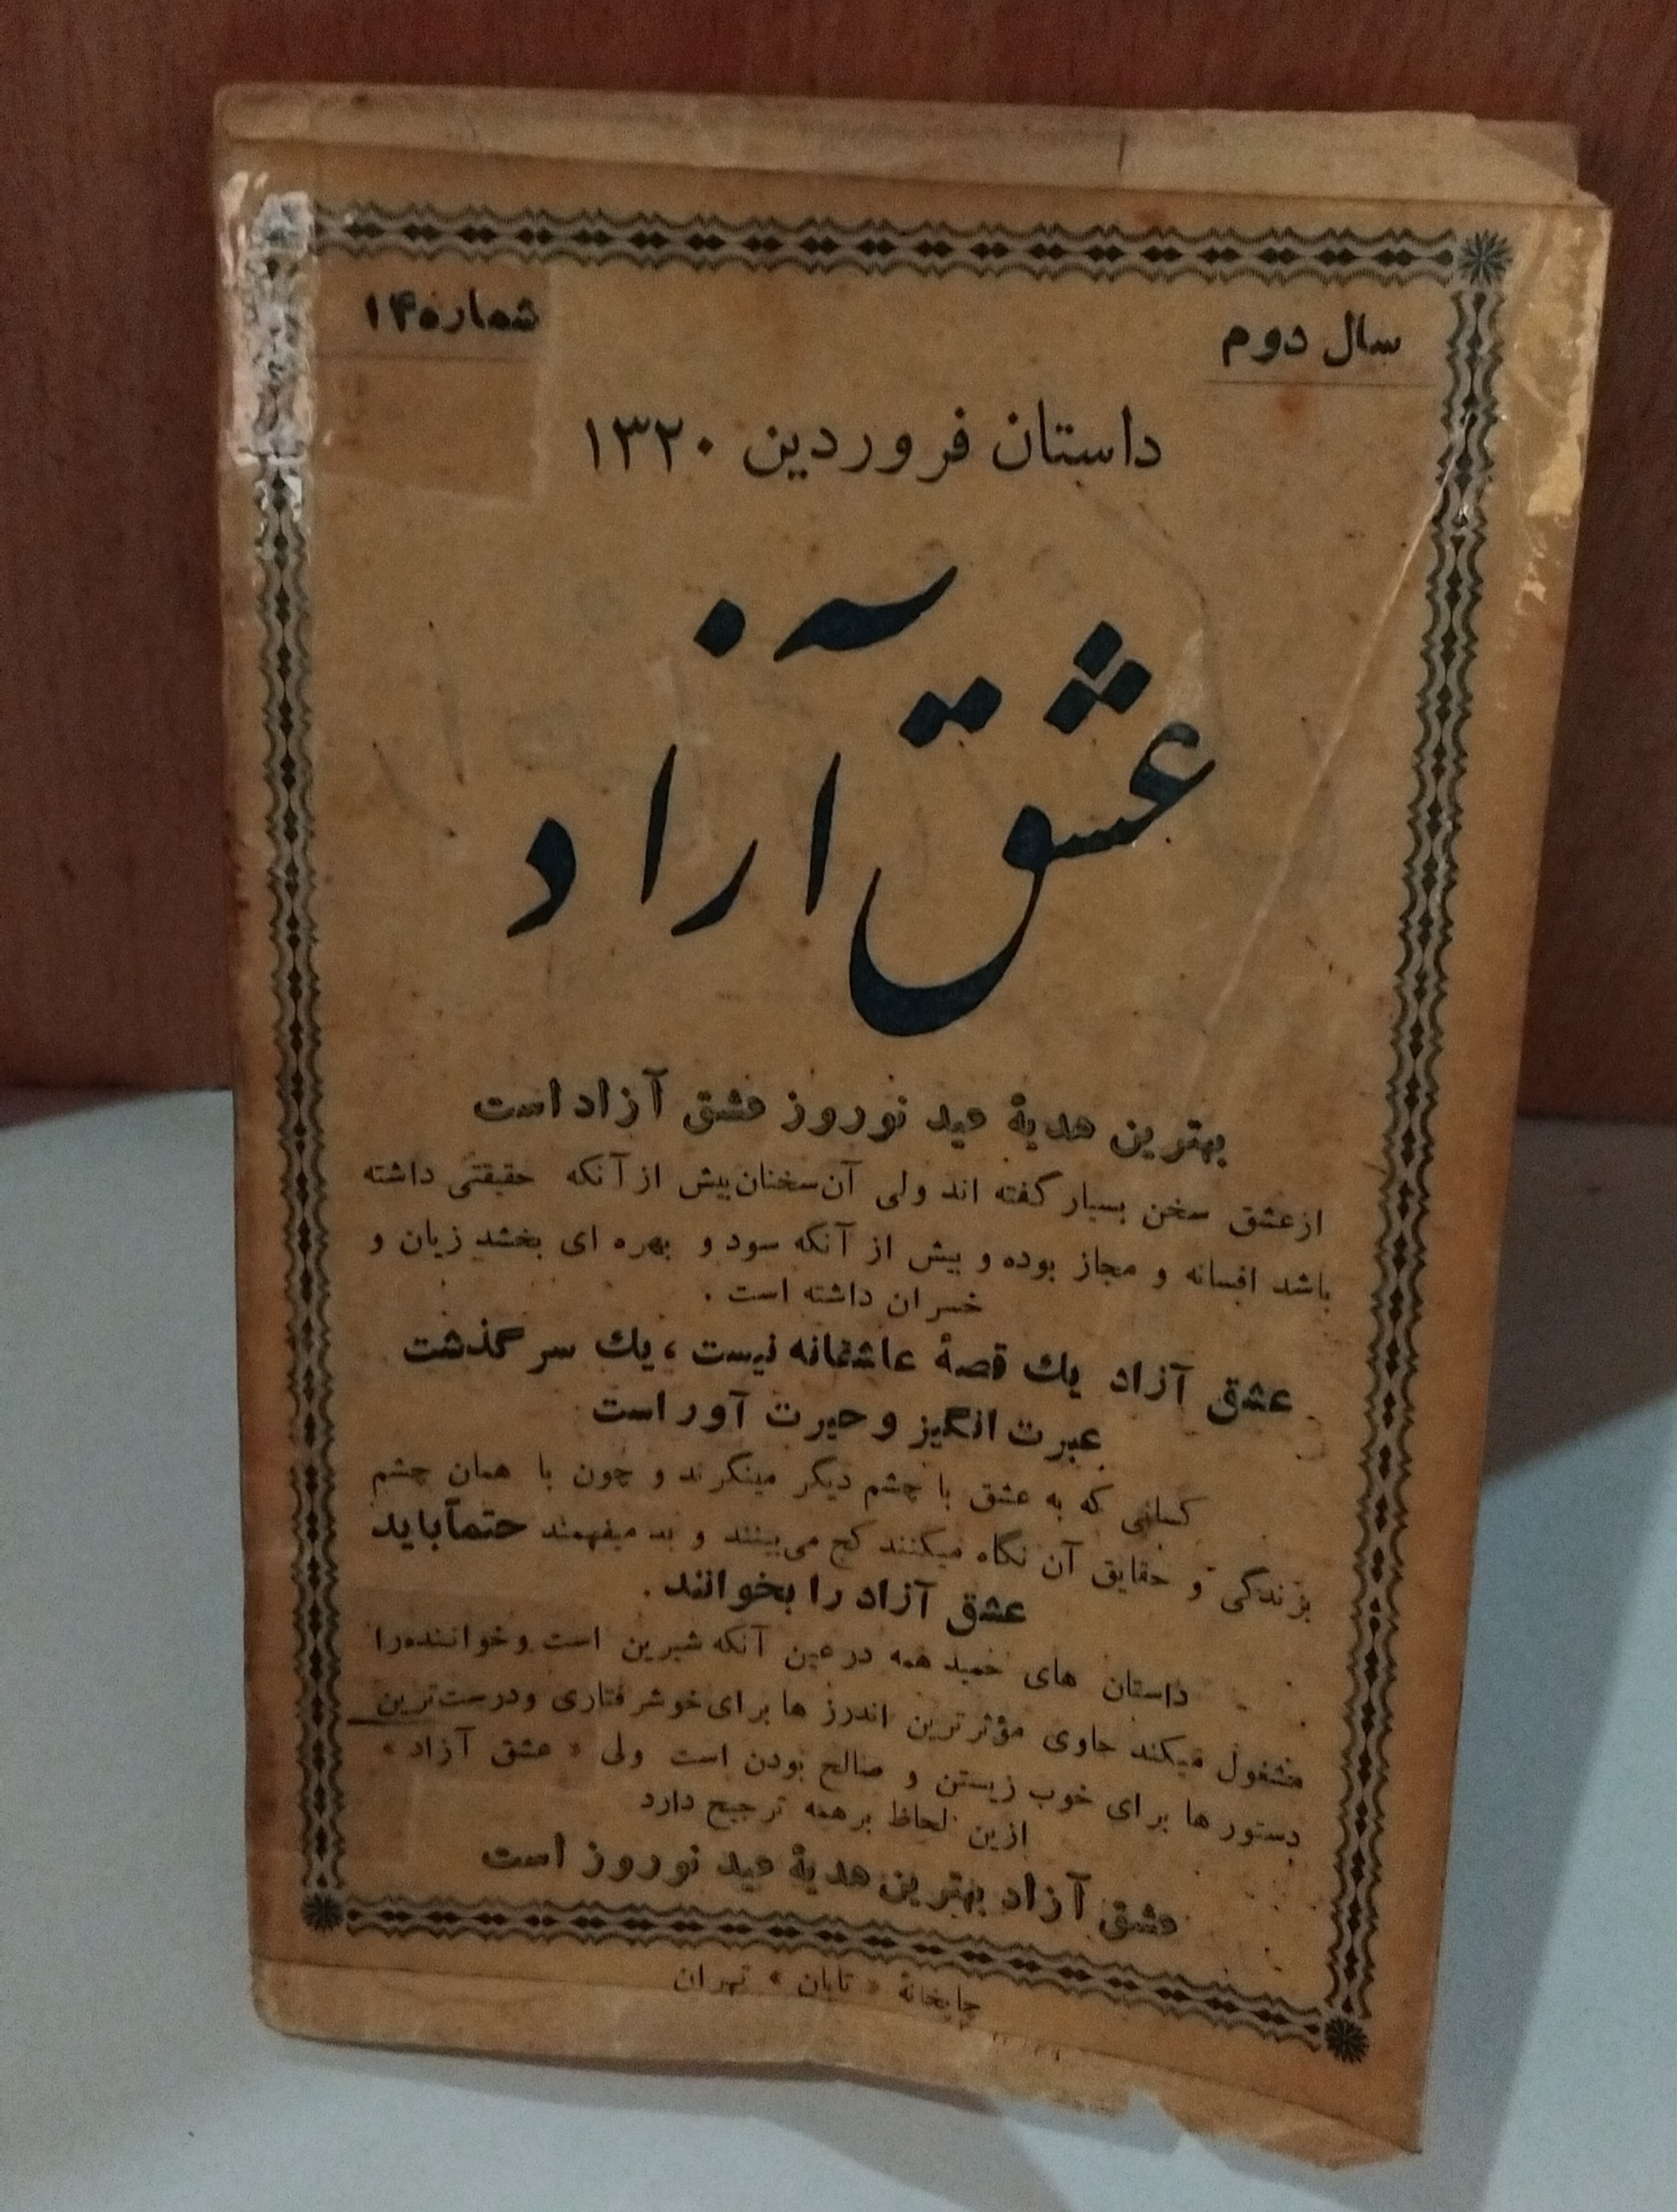 سال دوم
شماره ۱۴
داستان فروردین ۱۳۲۰
عشق آزاد
بهترین هدیهٔ عید نوروز عشق آزاد است
از عشق سخن بسیار گفته اند ولی آن سخنان بیش از آنکه حقیقتی داشته
باشد افسانه و مجاز بوده و بیش از آنکه سود و بهره ای بخشد زیان و
خسران داشته است .
عشق آزاد یك قصهٔ عاشقانه نیست ، یك سر گذشت
عبرت انگیز و حیرت آور است
کسانی که به عشق با چشم دیگر مینگرند و چون با همان چشم
بزندگی و حقایق آن نگاه میکنند کج می‌بینند و بد میفهمند حتماً باید
عشق آزاد را بخوانند .
داستان های حمید همه در عین آنکه شیرین است و خواننده را
مشغول میکند حاوی مؤثر ترین اندرز ها برای خوشرفتاری و درست‌ترین
دستور ها برای خوب زیستن و صالح بودن است ولی « عشق آزاد »
ازین لحاظ بر همه ترجیح دارد
عشق آزاد بهترین هدیهٔ عید نوروز است
چاپخانهٔ « تابان » تهران